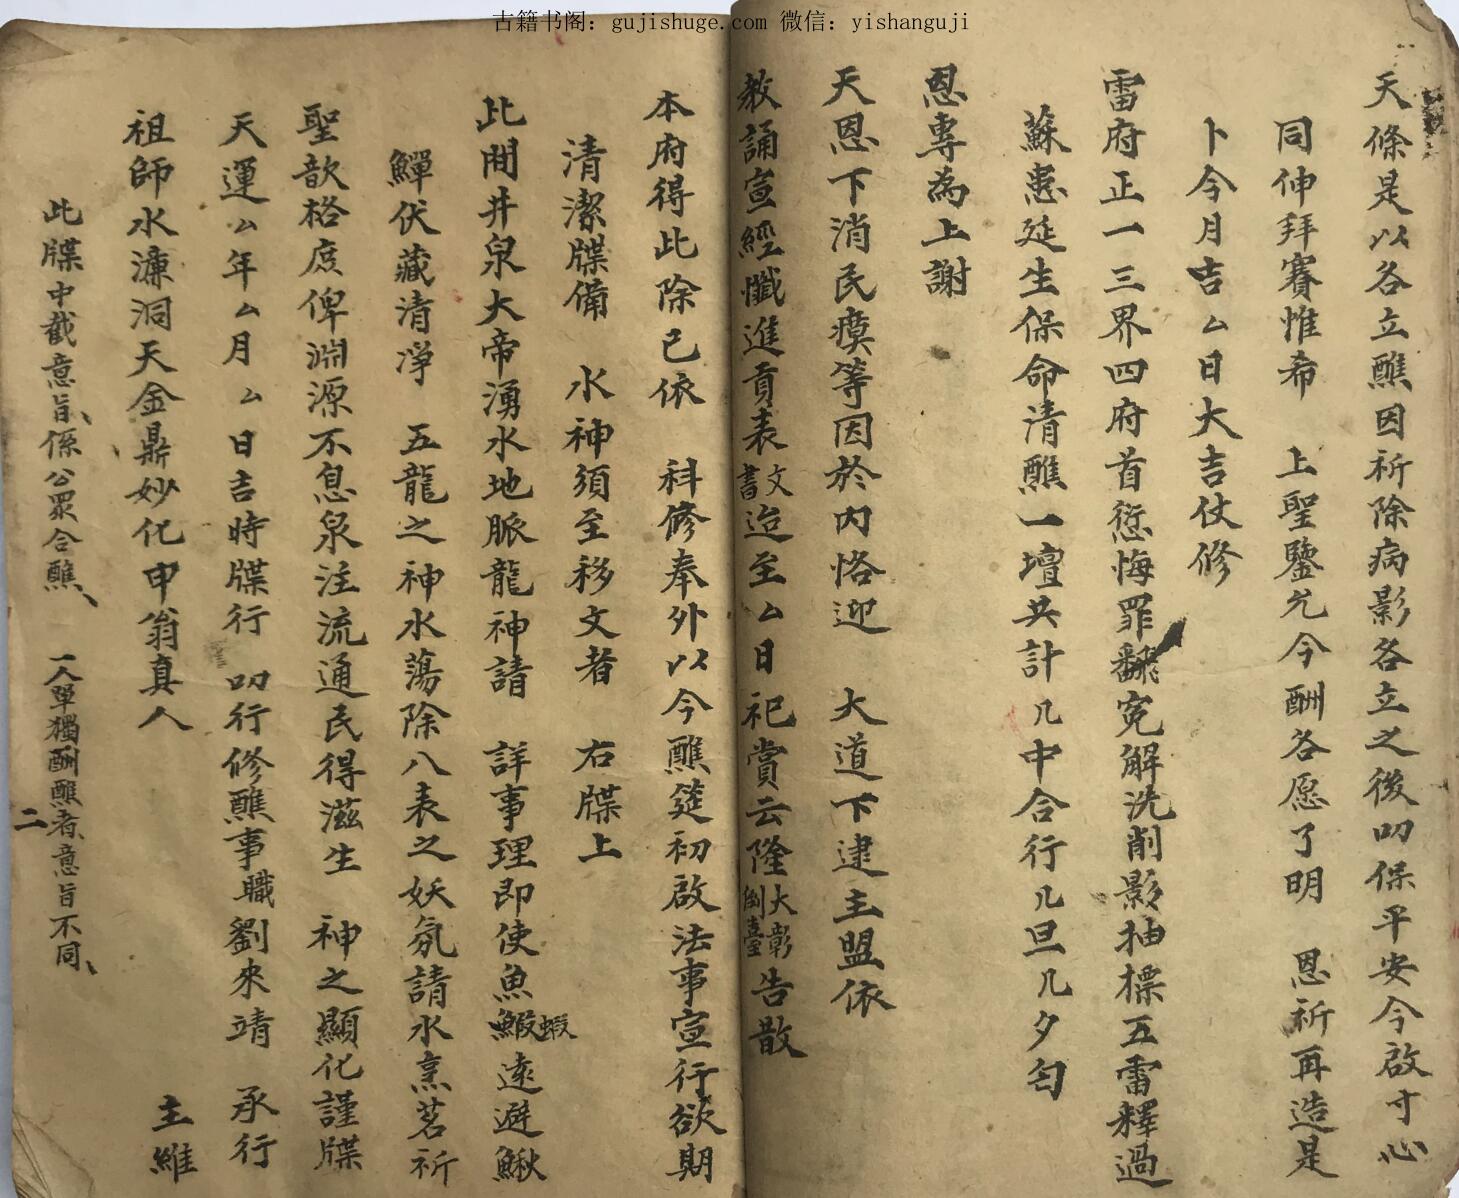 古籍书阁：gujishuge.com 微信：yishanguji
天條是以各立醮因祈除病影各立之後叩保平安今啟寸心
同伸拜賽惟希 上聖鑒允今酬各愿了明 恩祈再造是
卜今月吉厶日大吉仗修
雷府正一三界四府首愆悔罪翻冤解洗削影抽標五雷釋過
蘇患延生保命清醮一壇共計几中合行几旦几夕匄
恩專為上謝
天恩下消民瘼等因於內恪迎 大道下逮主盟依
教誦宣經懺進貢表文書迨至厶日祀賞云隆大彰倒臺告散
本府得此除已依 科修奉外以今醮筵初啟法事宣行欲期
清潔牒備 水神須至移文者 右牒上
此間井泉大帝湧水地脈龍神請 詳事理即使魚鰕蝦遠避鰍
鱓伏藏清凈 五龍之神水蕩除八表之妖氛請水烹茗祈
聖歆格庶俾淵源不息泉注流通民得滋生 神之顯化謹牒
天運厶年厶月厶日吉時牒行 叩行修醮事職劉來靖 承行
祖師水濂洞天金鼎妙化申翁真人 主維
此牒中截意旨、係公眾合醮、 一人單獨酬醮者、意旨不同、
二